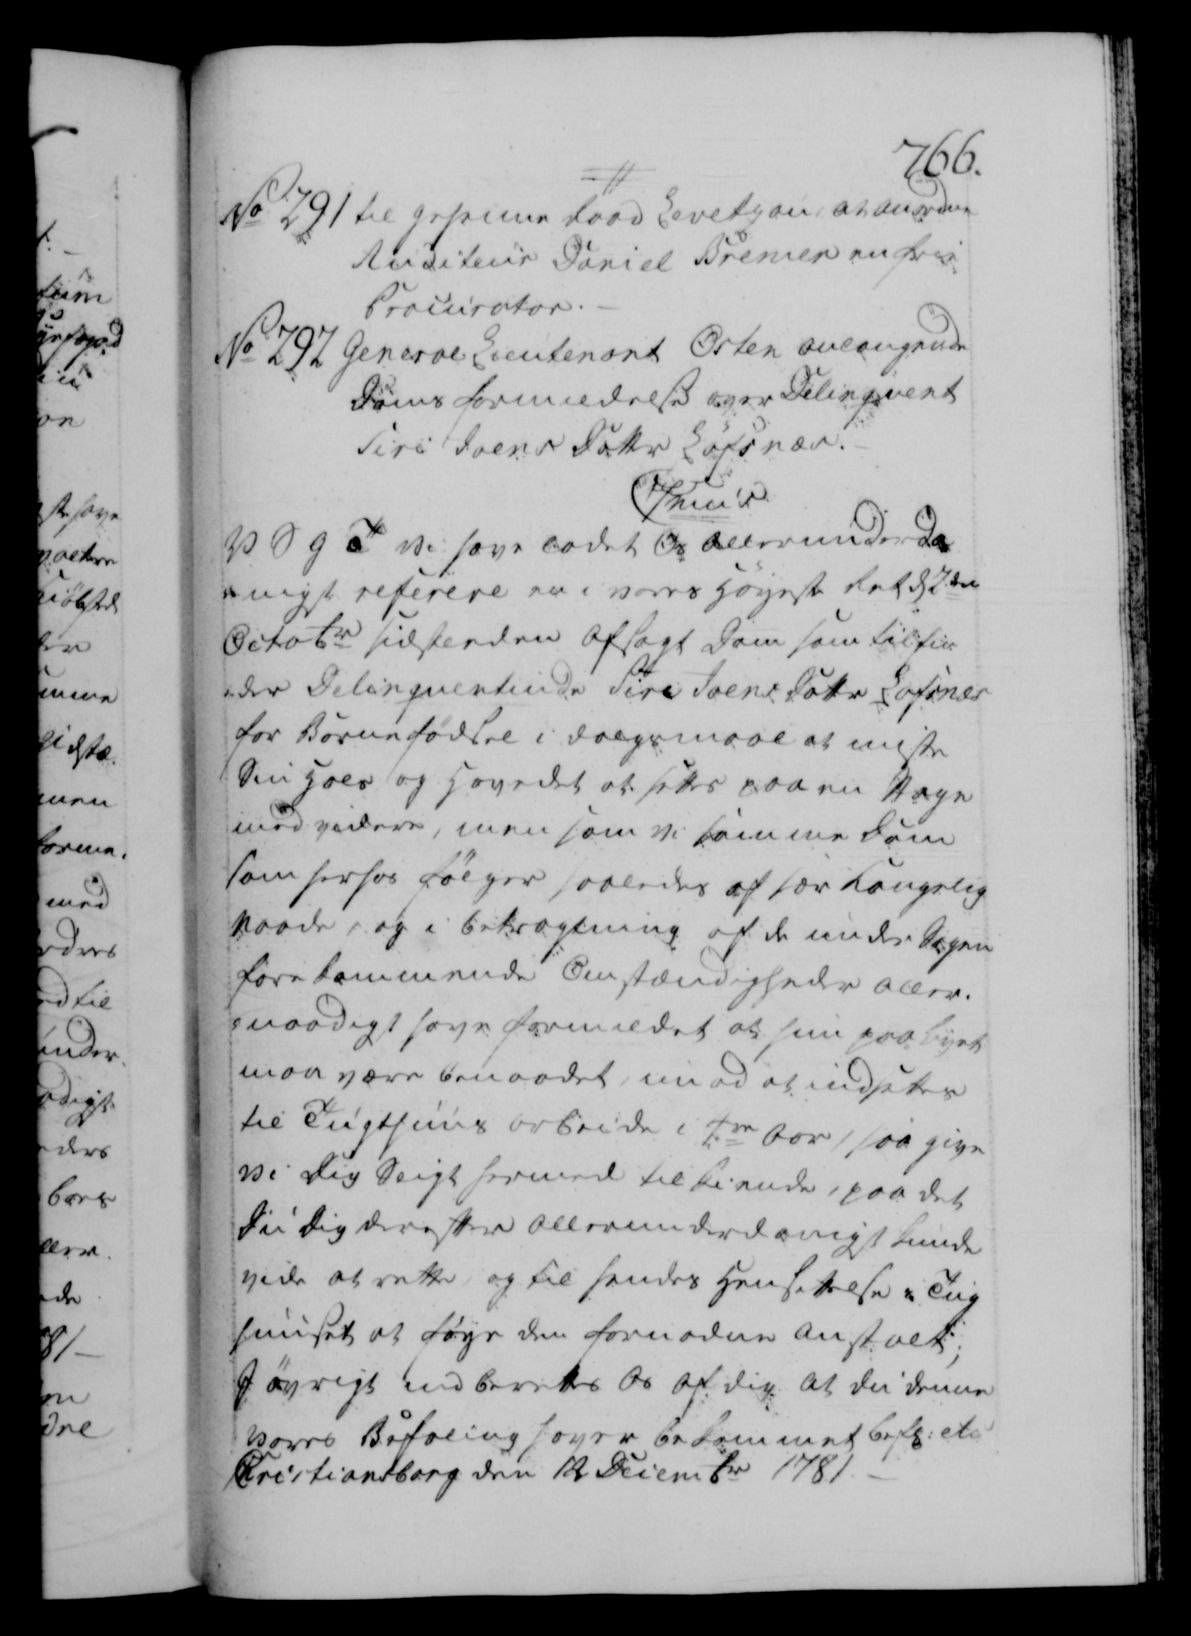 766.
No 291 til geheime Raad Levetzau, at anordne
Auditeur Daniel Bremer en frie
Procurator. —
No 292 General Lieutenant Osten anlangende
Doms formildelse over Delinqvent
Siri Joens Dotter Løfsnæs. —
V S g T Vi have ladet Os Allerunderda
nigst referere en i vores Høyeste Ret d 2den
Octobr sidstleden afsagt Dom som tilfin
der Delinquentinde Siri Joens Dotter Løfsnæs
for Børnefødsel i dølgsmaal at miste
Sin Hals og Hovedet at settes paa en Stage
med videre, men som vi samme Dom
som herhos følger saaledes af sær Kongelig
Naade, og i betragtning af de under Sagen
forekommende Omstændigheder Aller-
naadigst have formildet at hun paa Livet
maa være benaadet, imod at indsettes
til Tugthuus arbeide i Aar, saa give
Vi Dig Sligt hermed tilkiende, paa det
Du Dig derefter Allerunderdanigst kunde
vide at rette, og til hendes Hensettelse i Tug
huuset at føye den fornødne Anstalt;
I øvrigt indberettes Os af dig at du denne
vores Befaling haver bekommet befl: etc
Cristiansborg den 12 Decembr 1781. —